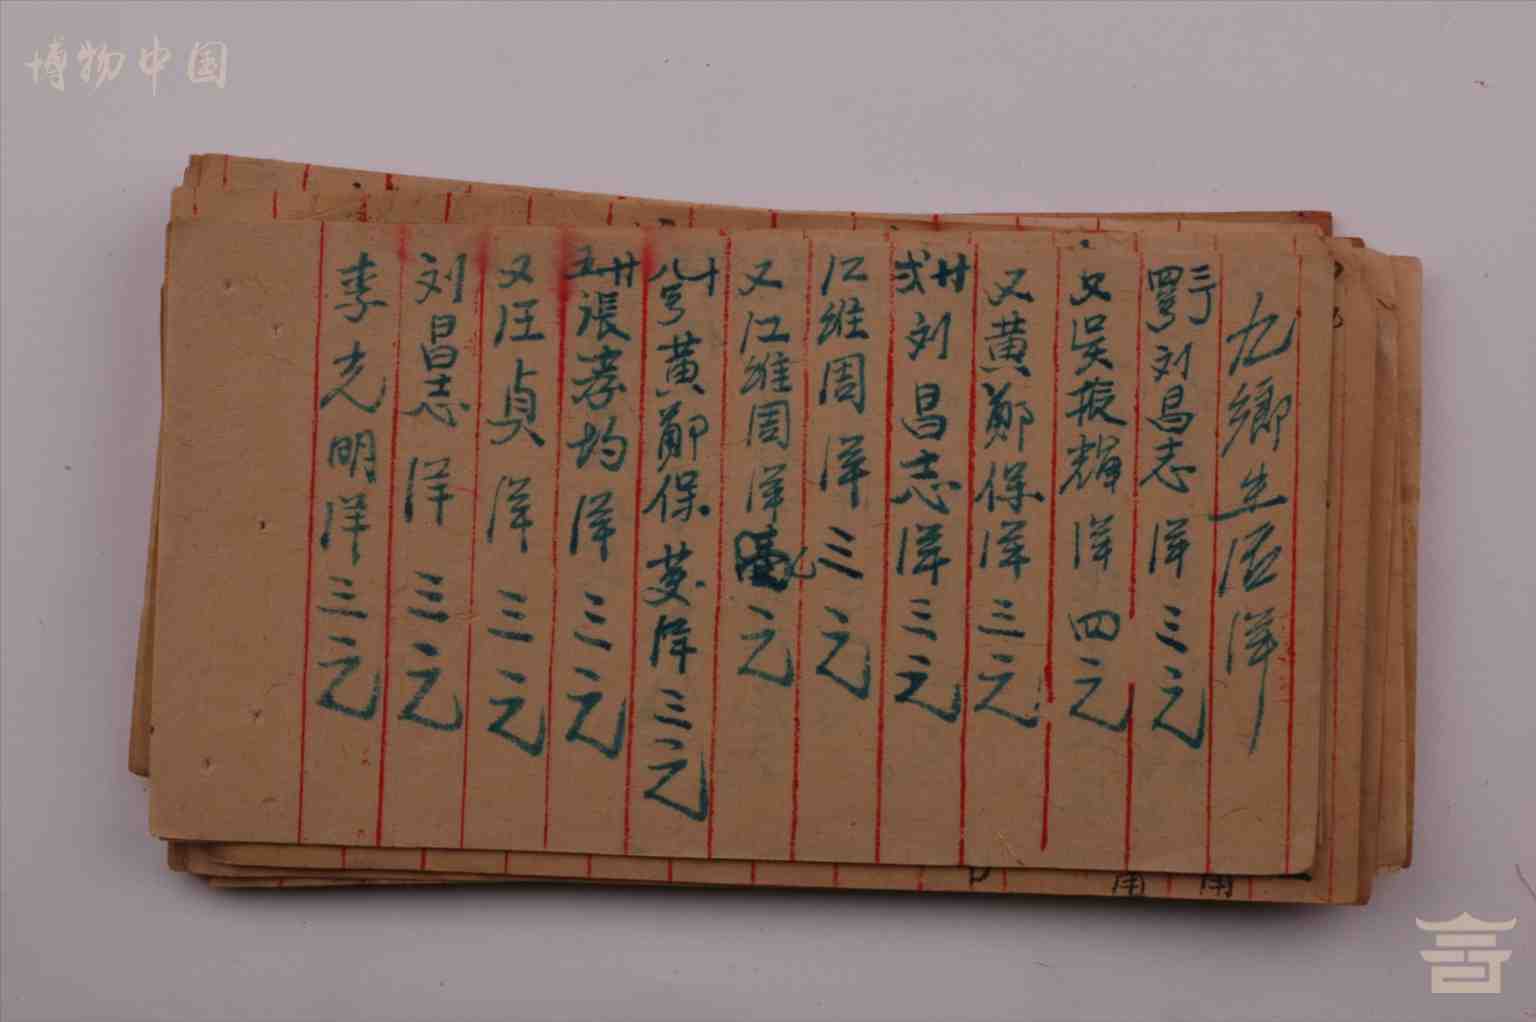 博物中国
九鄉生活洋
刘昌志洋三元
又吴振輝洋四元
又黄鄭保洋三元
廿弍刘昌志洋三元
江维周洋三元
又江维周洋元
十八号黄鄭保 洋三元
廿五張孝均洋三元
又汪貞洋三元
刘昌志洋三元
李光明洋三元